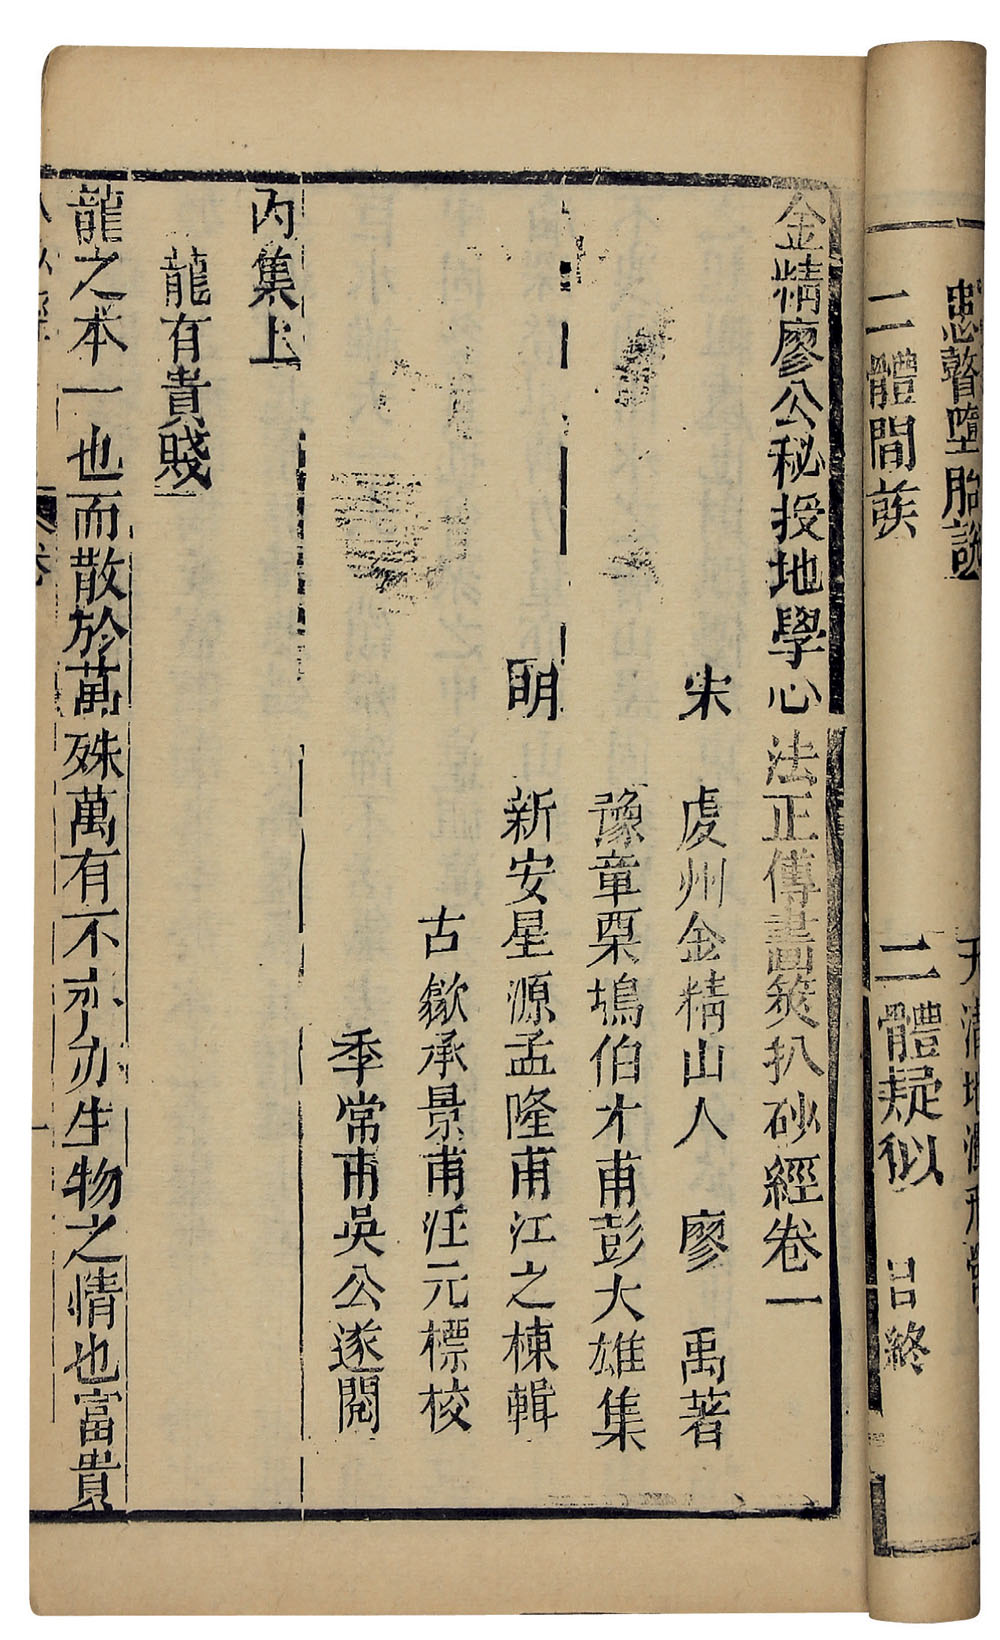 二體間䕃
二體疑似 目終
金精廖公秘授地學心法正傳畫筴扒砂經卷一
宋 虔州金精山人 廖 禹著
豫章栗塢伯才甫彭大雄集
明 新安星源孟隆甫江之棟輯
古歙承景甫汪元標校
季常甫吳公遂閱
內集上
龍有貴賤
龍之本一也而散於萬殊萬有不亦亦生物之情也富貴